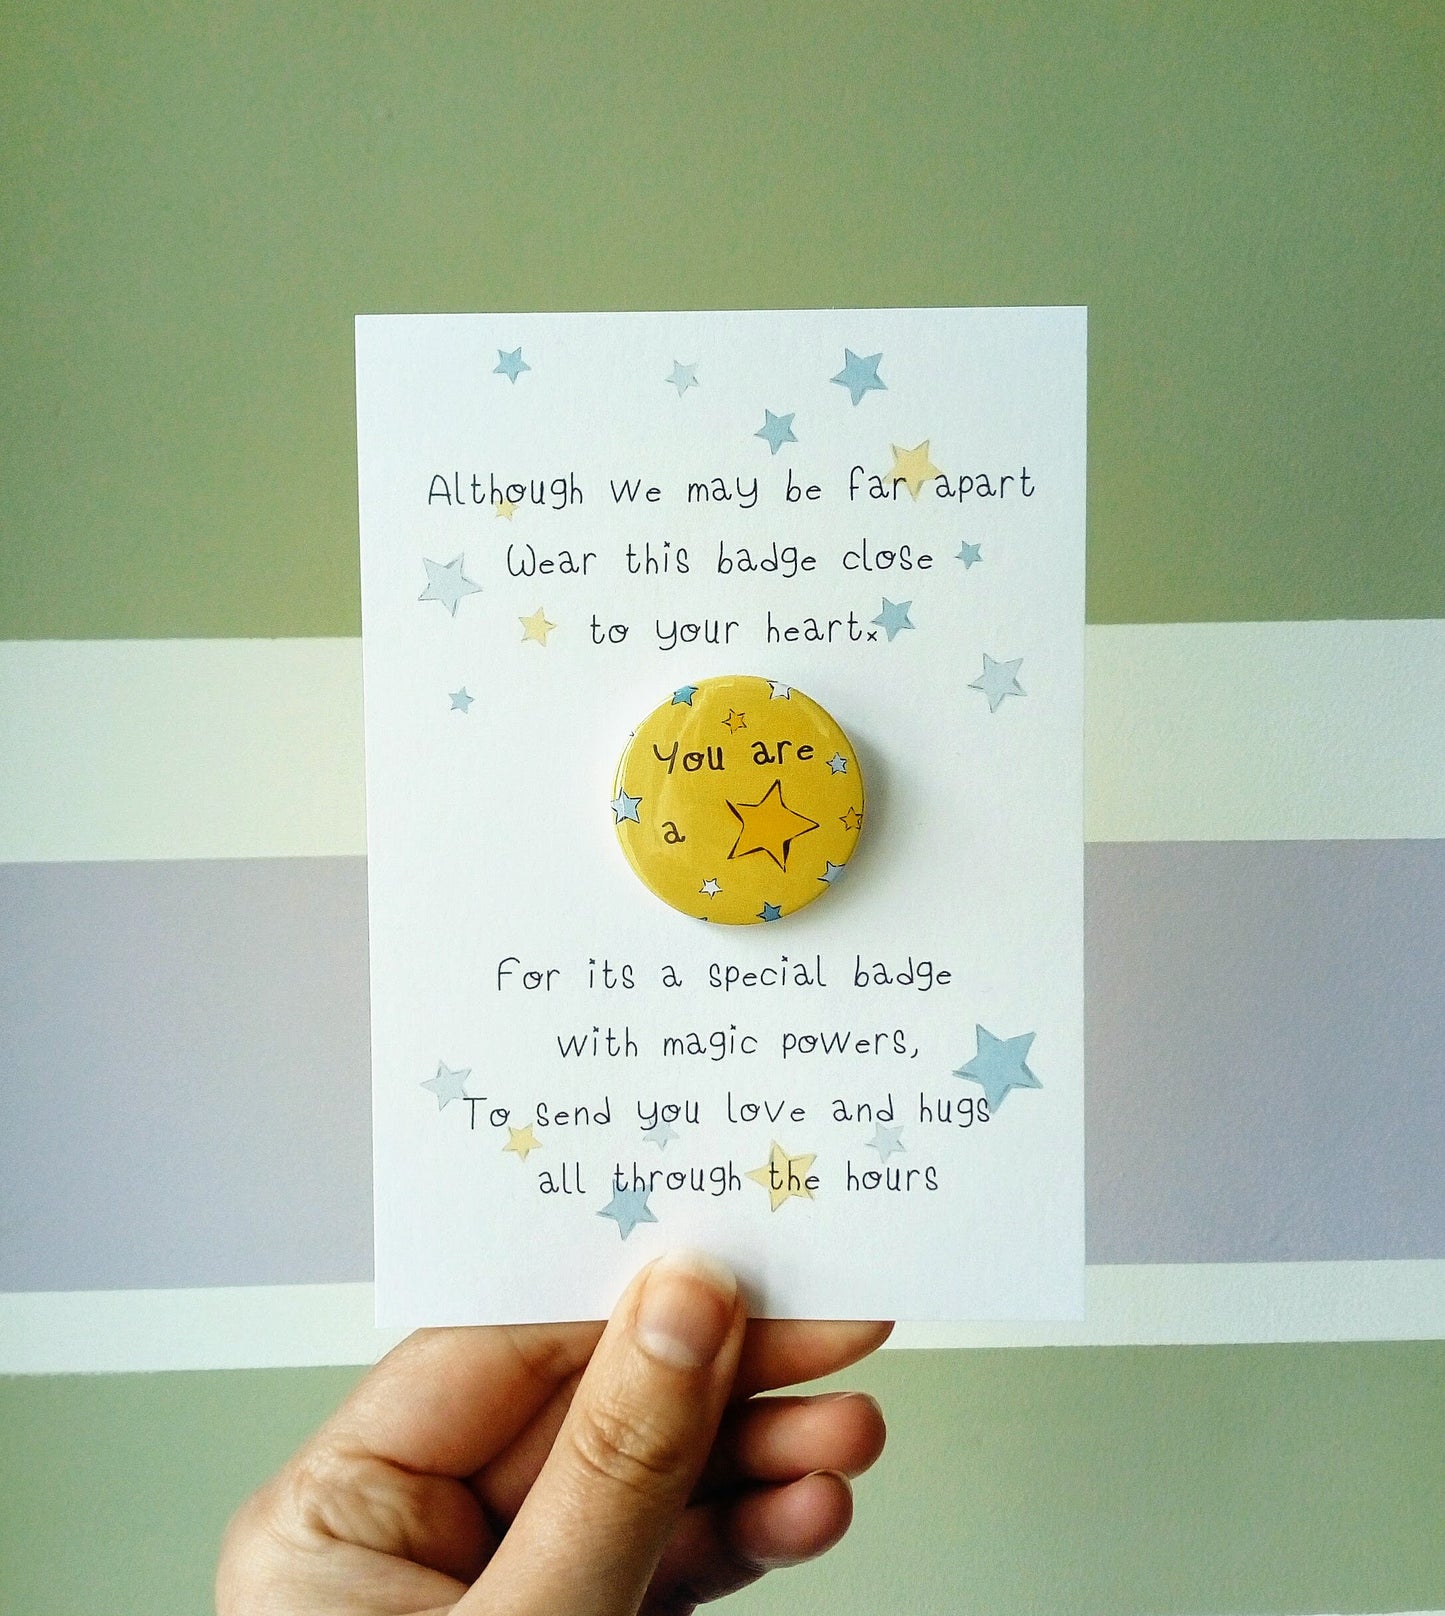 Although we may be far apart
Wear this badge close
to your heart.
You are
a
For its a special badge
with magic powers,
To send you love and hugs
all through the hours